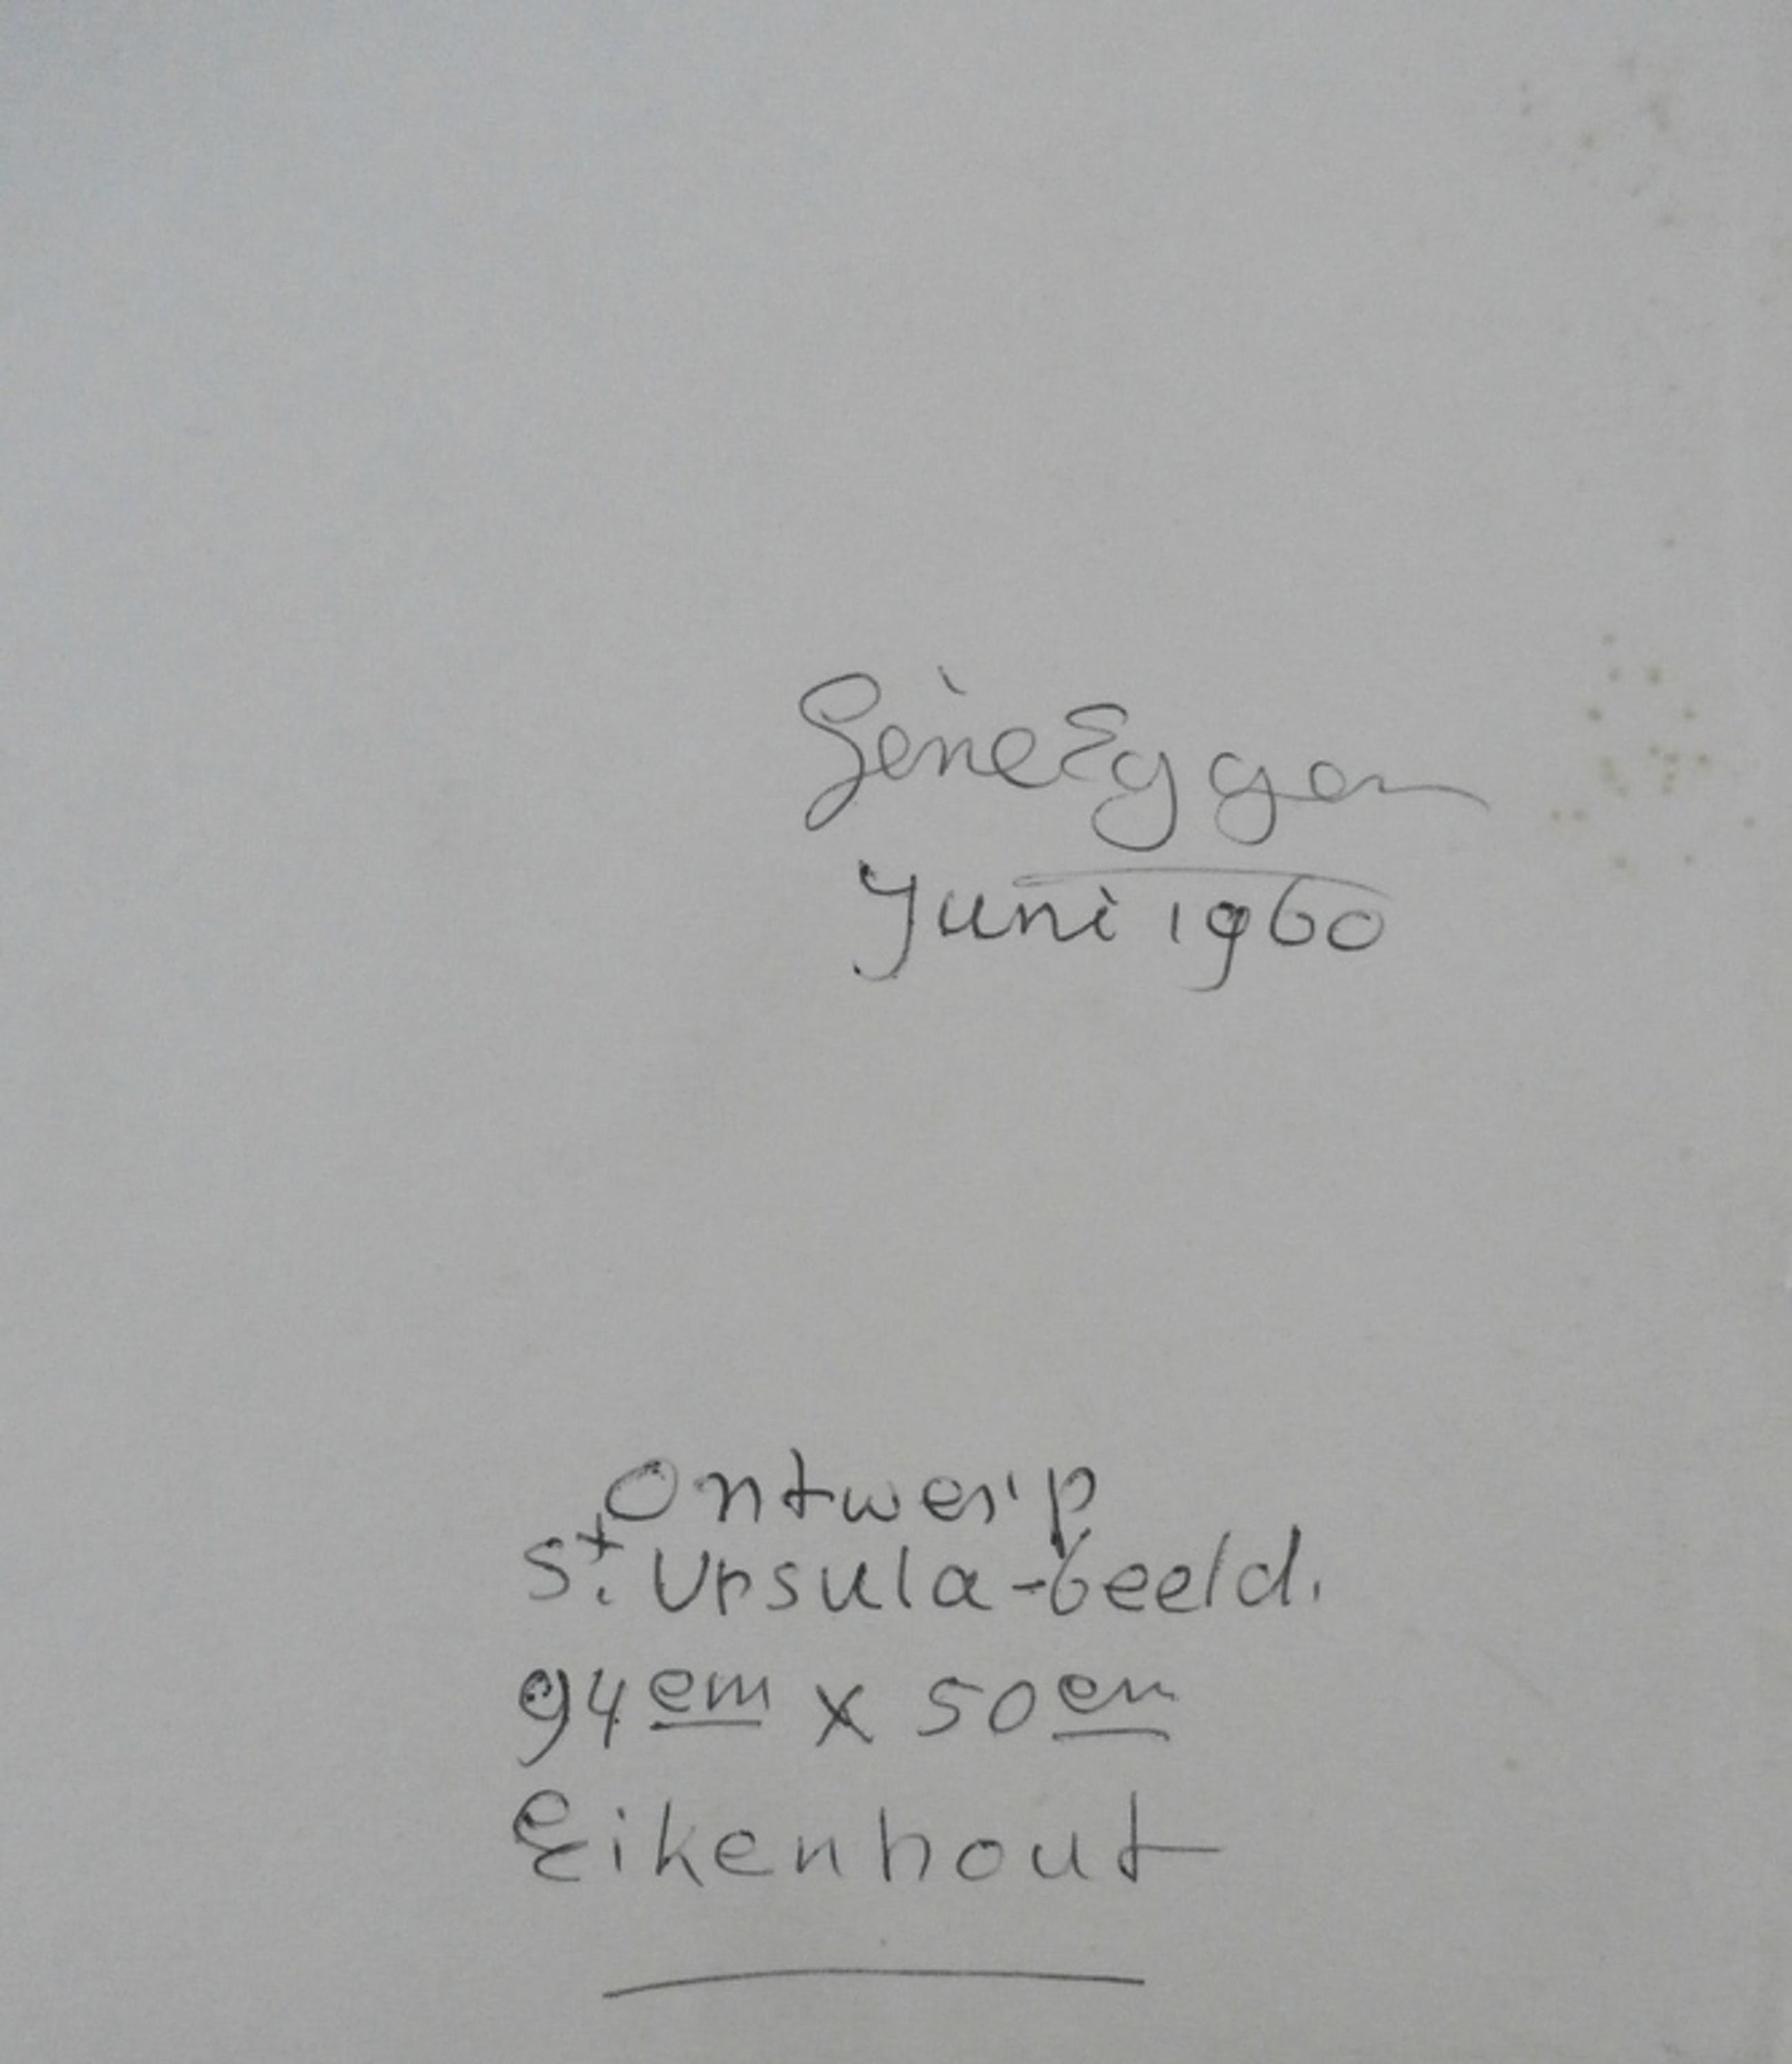 Gène Eggen
Juni 1960
Ontwerp
St. Ursula-beeld.
94 cm x 50 cm
Eikenhout